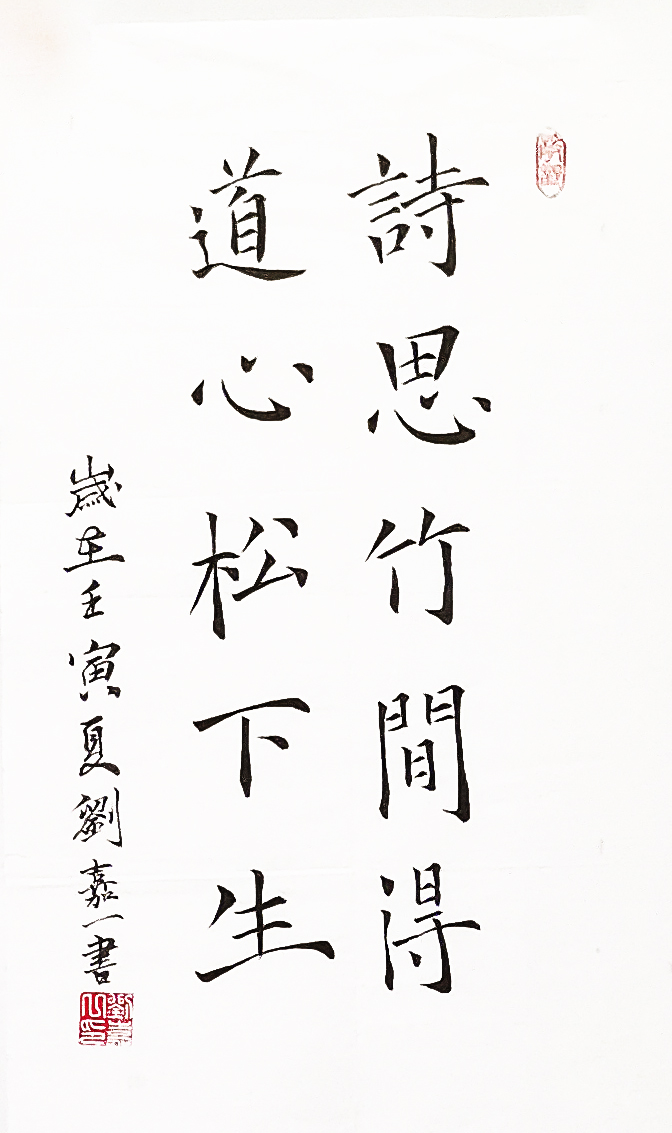 詩思竹間得
道心松下生
歲在壬寅夏劉嘉一書